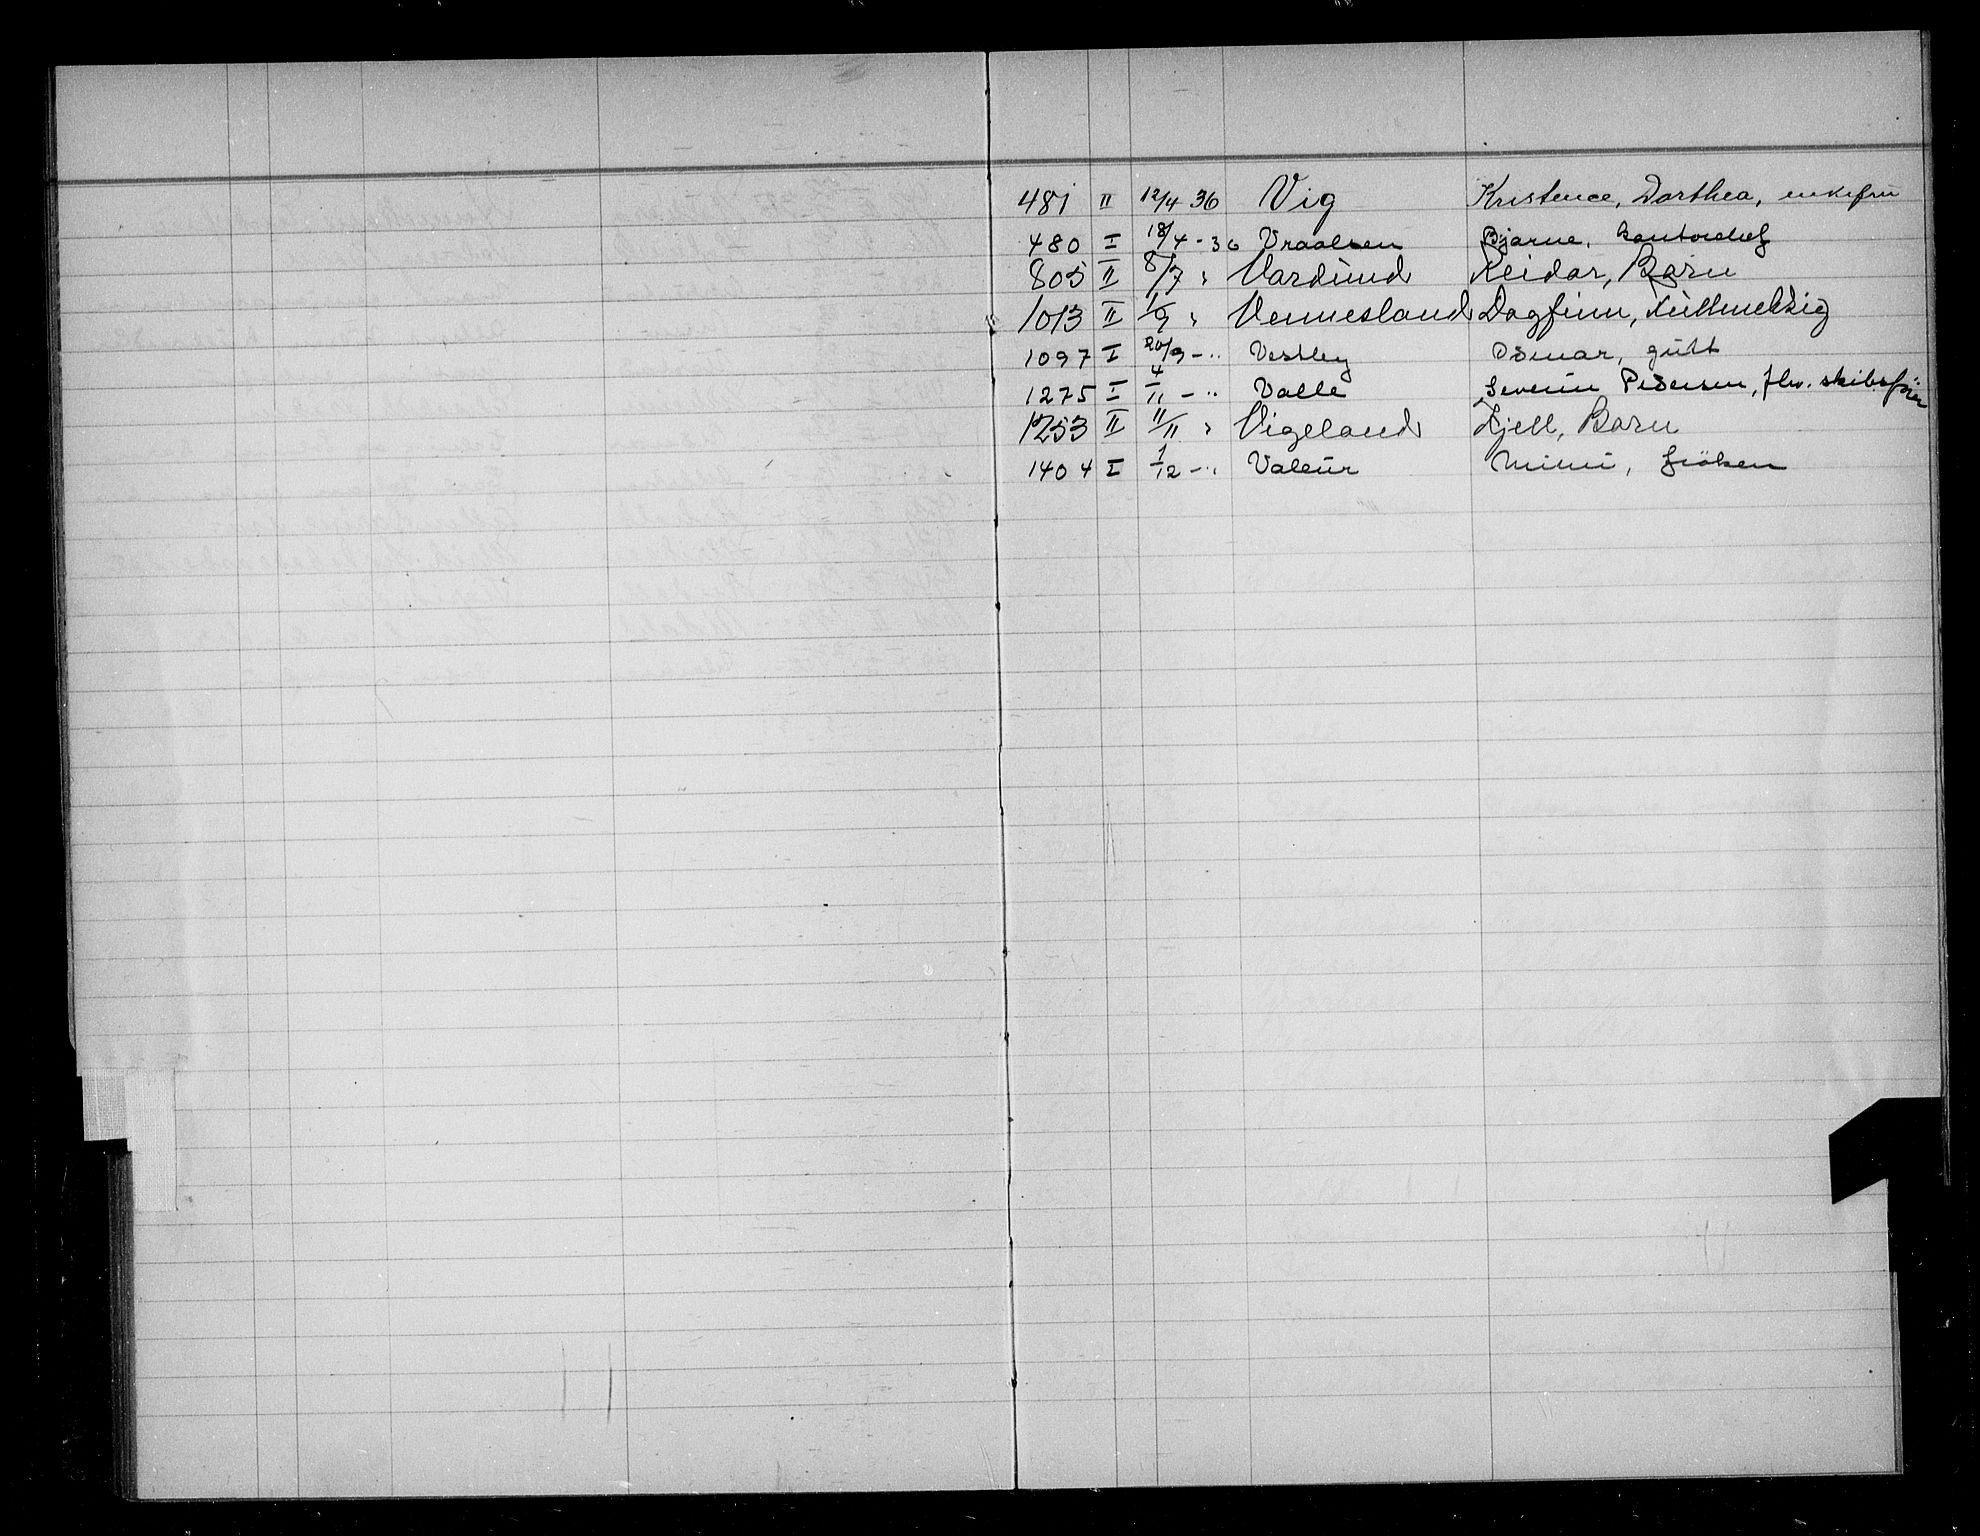 481 II 12/4 36 Vig Kristence, Dorthea, enkefru
480 I 18/4 - 36 Vraalsen Bjarne, kontorchef
805 II 8/7 " Vardund Reidar, Barn
1013 II 1/9 " Vennesland Dagfinn,
1097 I 20/9 - " Vestley Osmar, gutt
1275 I 4/11 - " Valle Severin Pedersen, fhv. skibsfører
1253 II 11/11 " Vigeland Kjell, Barn
1404 I 1/12 - " Valeur Mimi, frøken